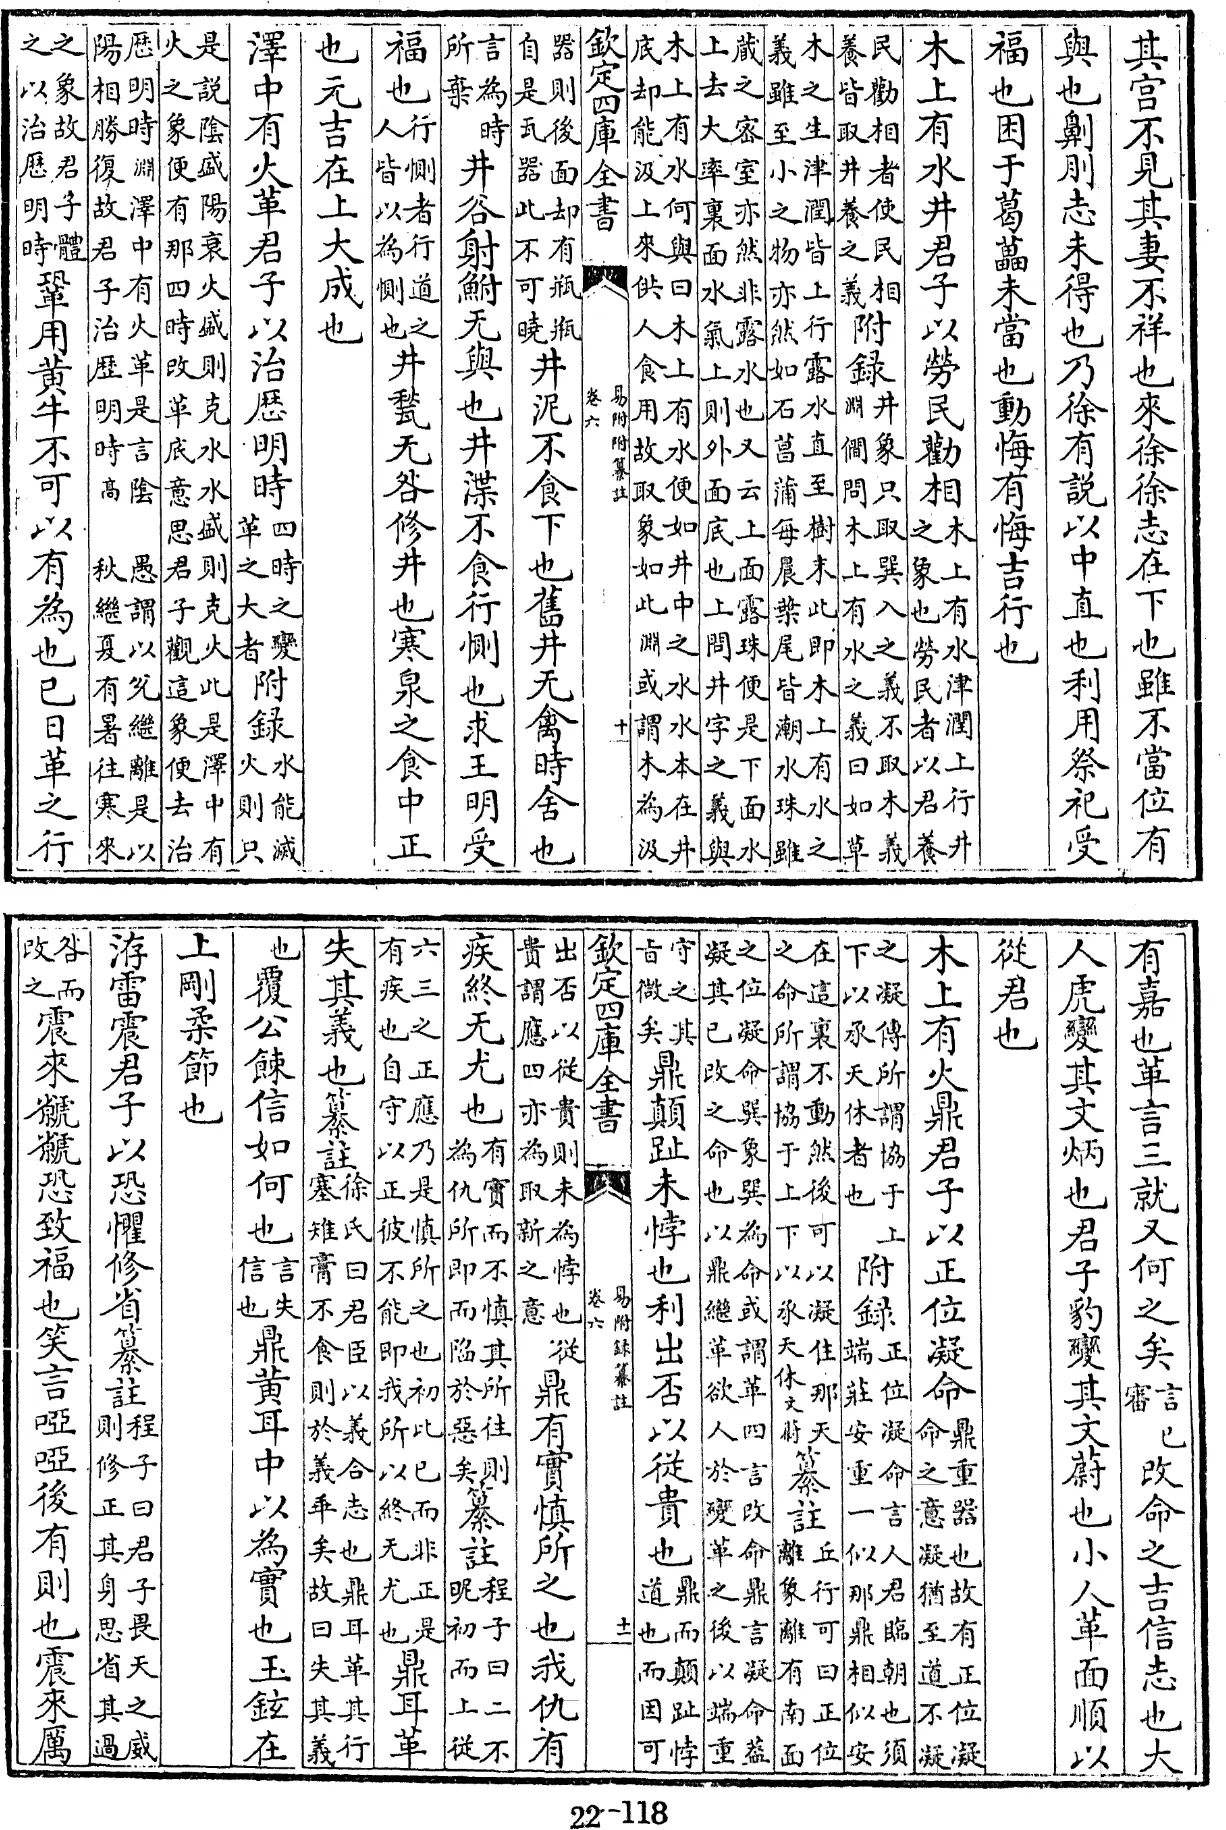 其宫不見其妻不祥也來徐徐志在下也雖不當位有
與也劓刖志未得也乃徐有説以中直也利用祭祀受
福也困于葛藟未當也動悔有悔吉行也
木上有水井君子以勞民勸相木上有水津潤上行井之象也勞民者以君養
民勸相者使民相養皆取井養之義附録井象只取巽入之義不取木義淵僩問木上有水之義曰如草
木之生津潤皆上行露水直至樹末此即木上有水之義雖至小之物亦然如石菖蒲每晨葉尾皆潮水珠雖
藏之宻室亦然非露水也又云上面露珠便是下面水上去大率裏面水氣上則外面底也上問井字之義與
木上有水何與曰木上有水便如井中之水水本在井底却能汲上來供人食用故取象如此淵或謂木為汲
欽定四庫全書 易附附纂註 卷六 十
器則後面却有瓶瓶自是瓦器此不可曉井泥不食下也舊井无禽時舍也
言為時所棄井谷射鮒无與也井渫不食行惻也求王明受
福也行惻者行道之人皆以為惻也井甃无咎修井也寒泉之食中正
也元吉在上大成也
澤中有火革君子以治厯明時四時之變革之大者附録水能滅火則只
是説陰盛陽衰火盛則克水水盛則克火此是澤中有火之象便有那四時改革底意思君子觀這象便去治
厯明時淵澤中有火革是言陰陽相勝復故君子治厯明時高愚謂以兊繼離是以秋繼夏有暑往寒來
之象故君子體之以治厯明時鞏用黄牛不可以有為也已日革之行
有嘉也革言三就又何之矣言已審改命之吉信志也大
人虎變其文炳也君子豹變其文蔚也小人革面順以
從君也
木上有火鼎君子以正位凝命鼎重器也故有正位凝命之意凝猶至道不凝
之凝傳所謂協于上下以承天休者也附録正位凝命言人君臨朝也須端莊安重一似那鼎相似安
在這裏不動然後可以凝住那天之命所謂協于上下以承天休文蔚纂註丘行可曰正位離象離有南面
之位凝命巽象巽為命或謂革四言改命鼎言凝命葢凝其已改之命也以鼎繼革欲人於變革之後以端重
守之其旨微矣鼎顛趾未悖也利出否以從貴也鼎而顛趾悖道也而因可
欽定四庫全書 易附録纂註 卷六 十一
出否以從貴則未為悖也從貴謂應四亦為取新之意鼎有實慎所之也我仇有
疾終无尤也有實而不慎其所往則為仇所即而陷於惡矣纂註程子曰二不昵初而上從
六三之正應乃是慎所之也初比已而非正是有疾也自守以正彼不能即我所以終无尤也鼎耳革
失其義也纂註徐氏曰君臣以義合志也鼎耳革其行塞雉膏不食則於義乖矣故曰失其義
也覆公餗信如何也言失信也鼎黄耳中以為實也玉鉉在
上剛柔節也
洊雷震君子以恐懼修省纂註程子曰君子畏天之威則修正其身思省其過
咎而改之震來虩虩恐致福也笑言啞啞後有則也震來厲
22-118